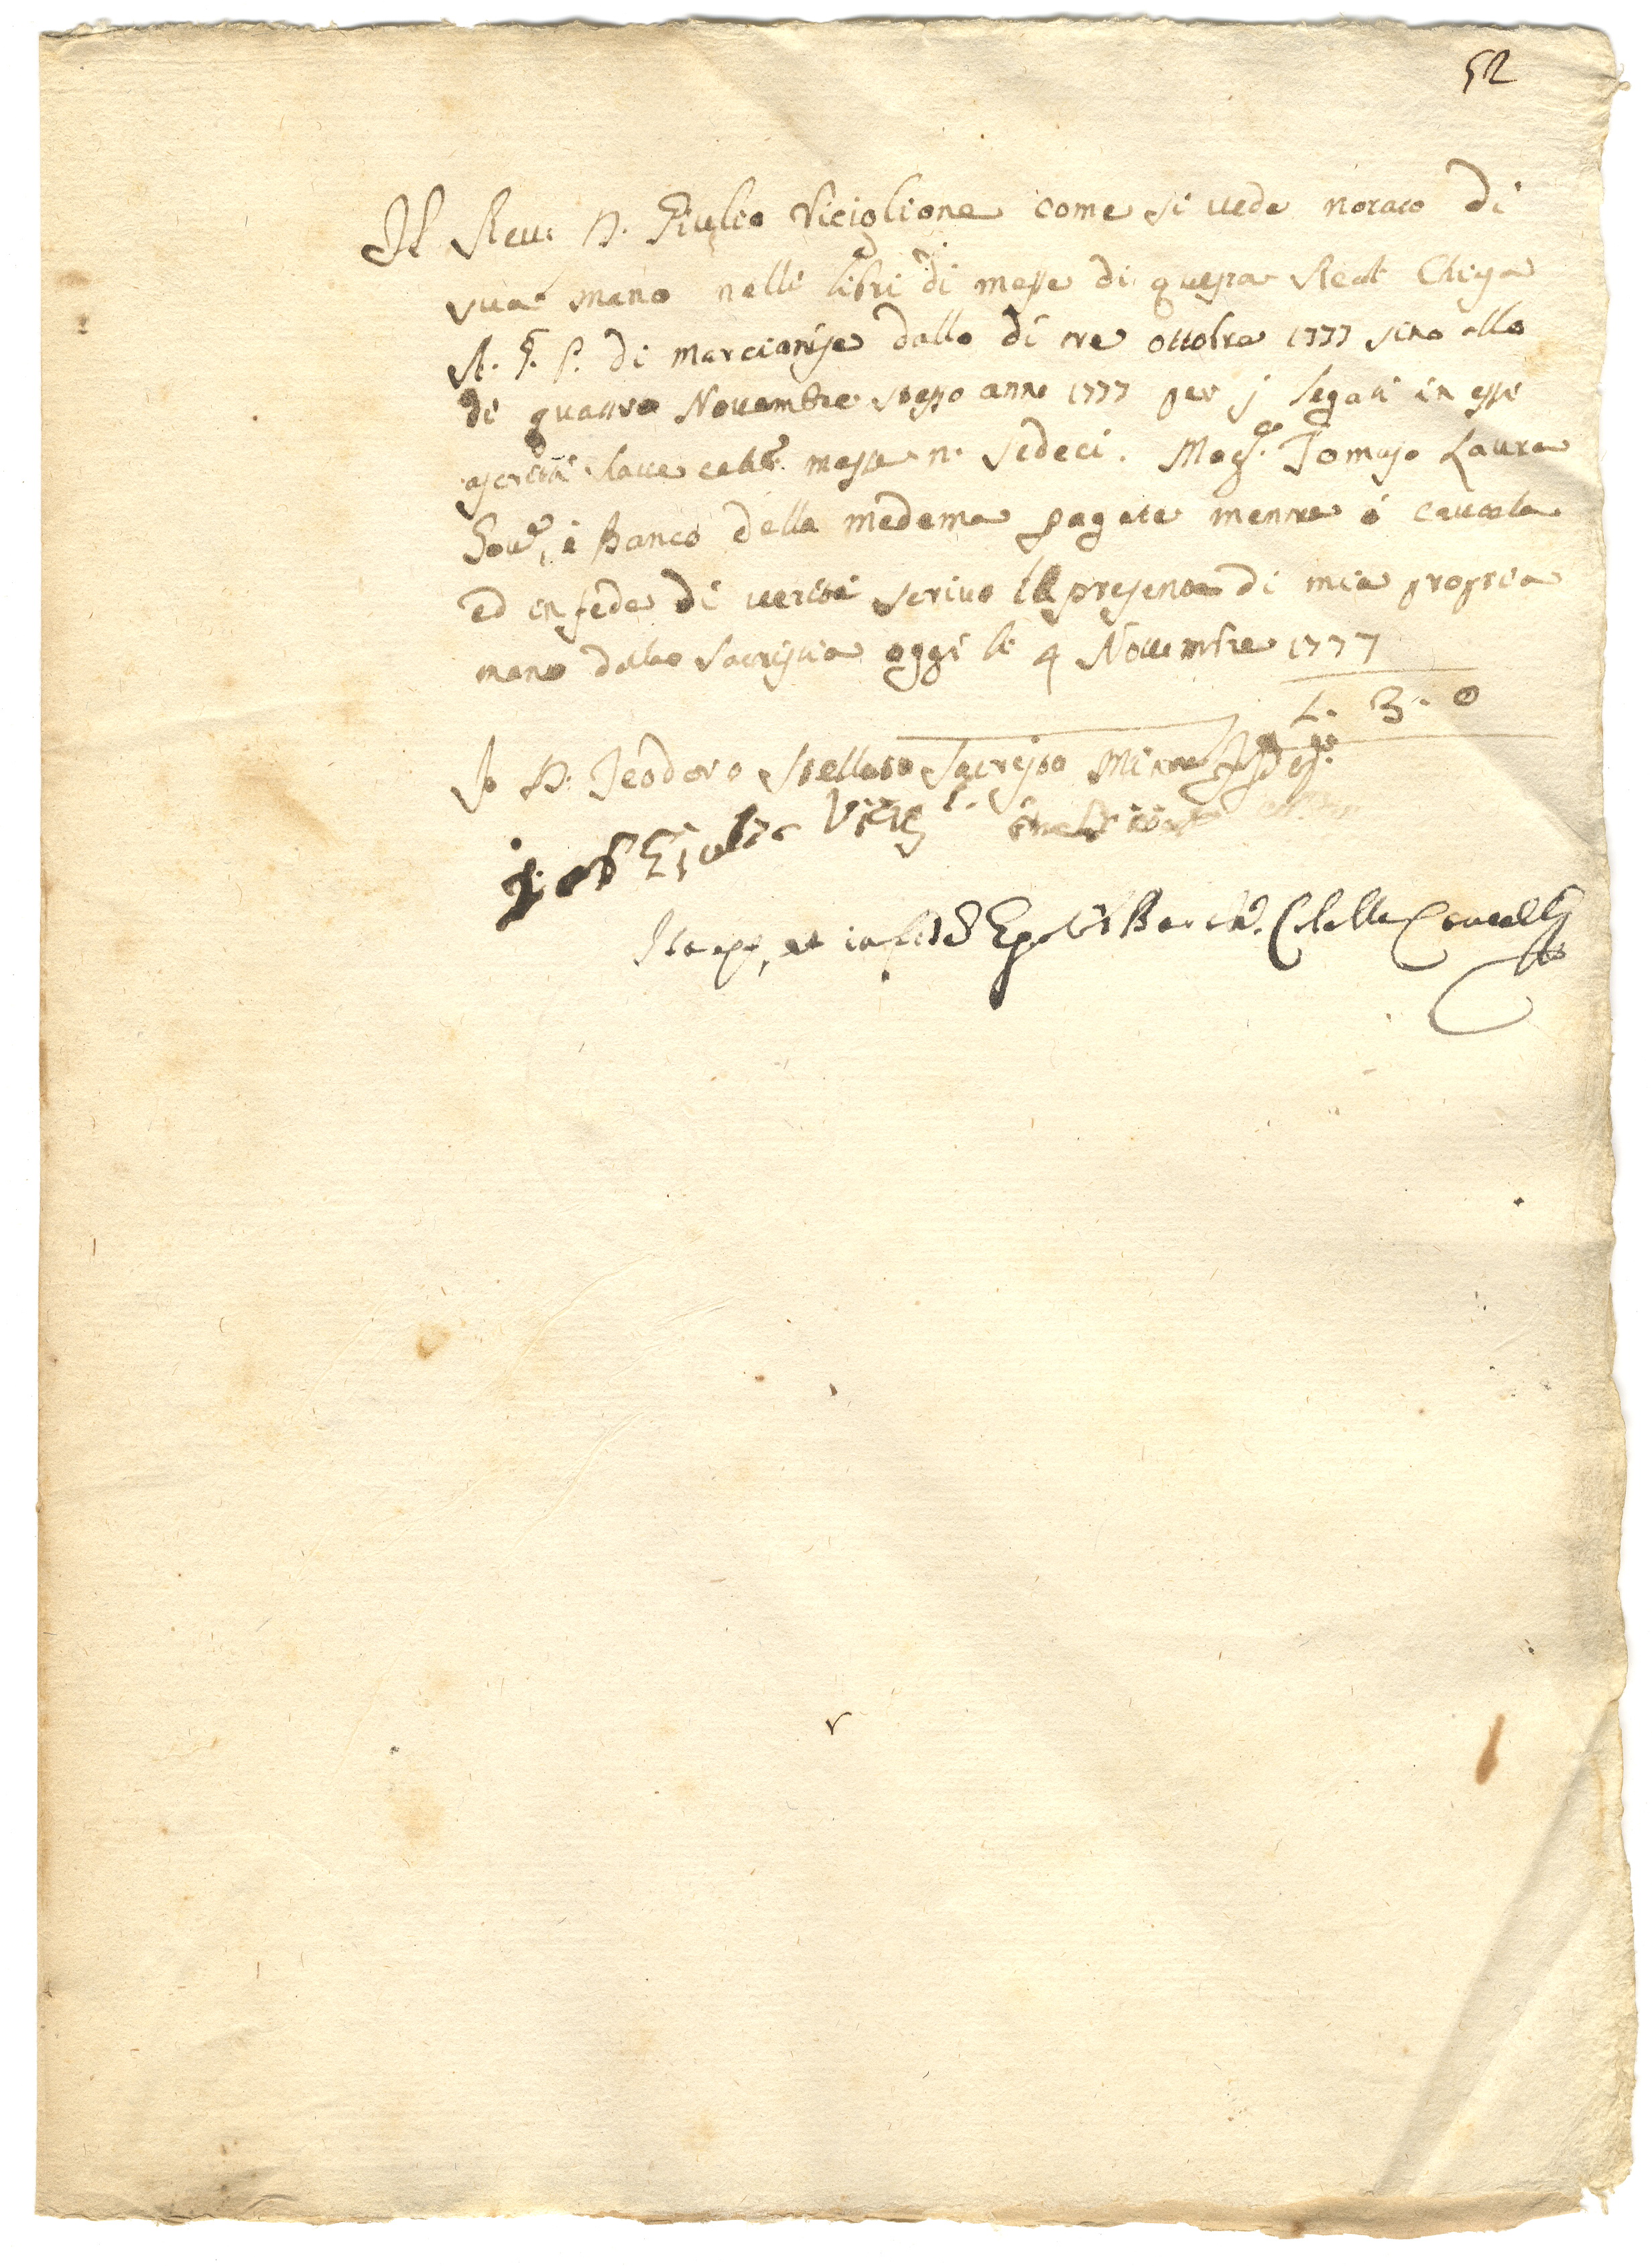 52
Il Reu: D. Giulio Viciglione come si vede notato di
sua mano nelli libri di messe di questa Real Chiesa
A. G. P. di Marcianise dallo di tre ottobre 1777 sino allo
di quattro Novembre stesso anno 1777 per j legati in esse
ascritti have messe n. sedeci. Mag.co Tomaso Laura
Gov.e, è Banco della medema pagate mentre è cautela
ed in fede di verità scrivo la presente di mia propria
mano dalla Sacristia oggi li 4 Novembre 1777
L. 3 - 0
Io D. Teodoro Stellato Sacrista
Io D. Giulio Vicig.
Ita est, et in fidem Colella Cancell